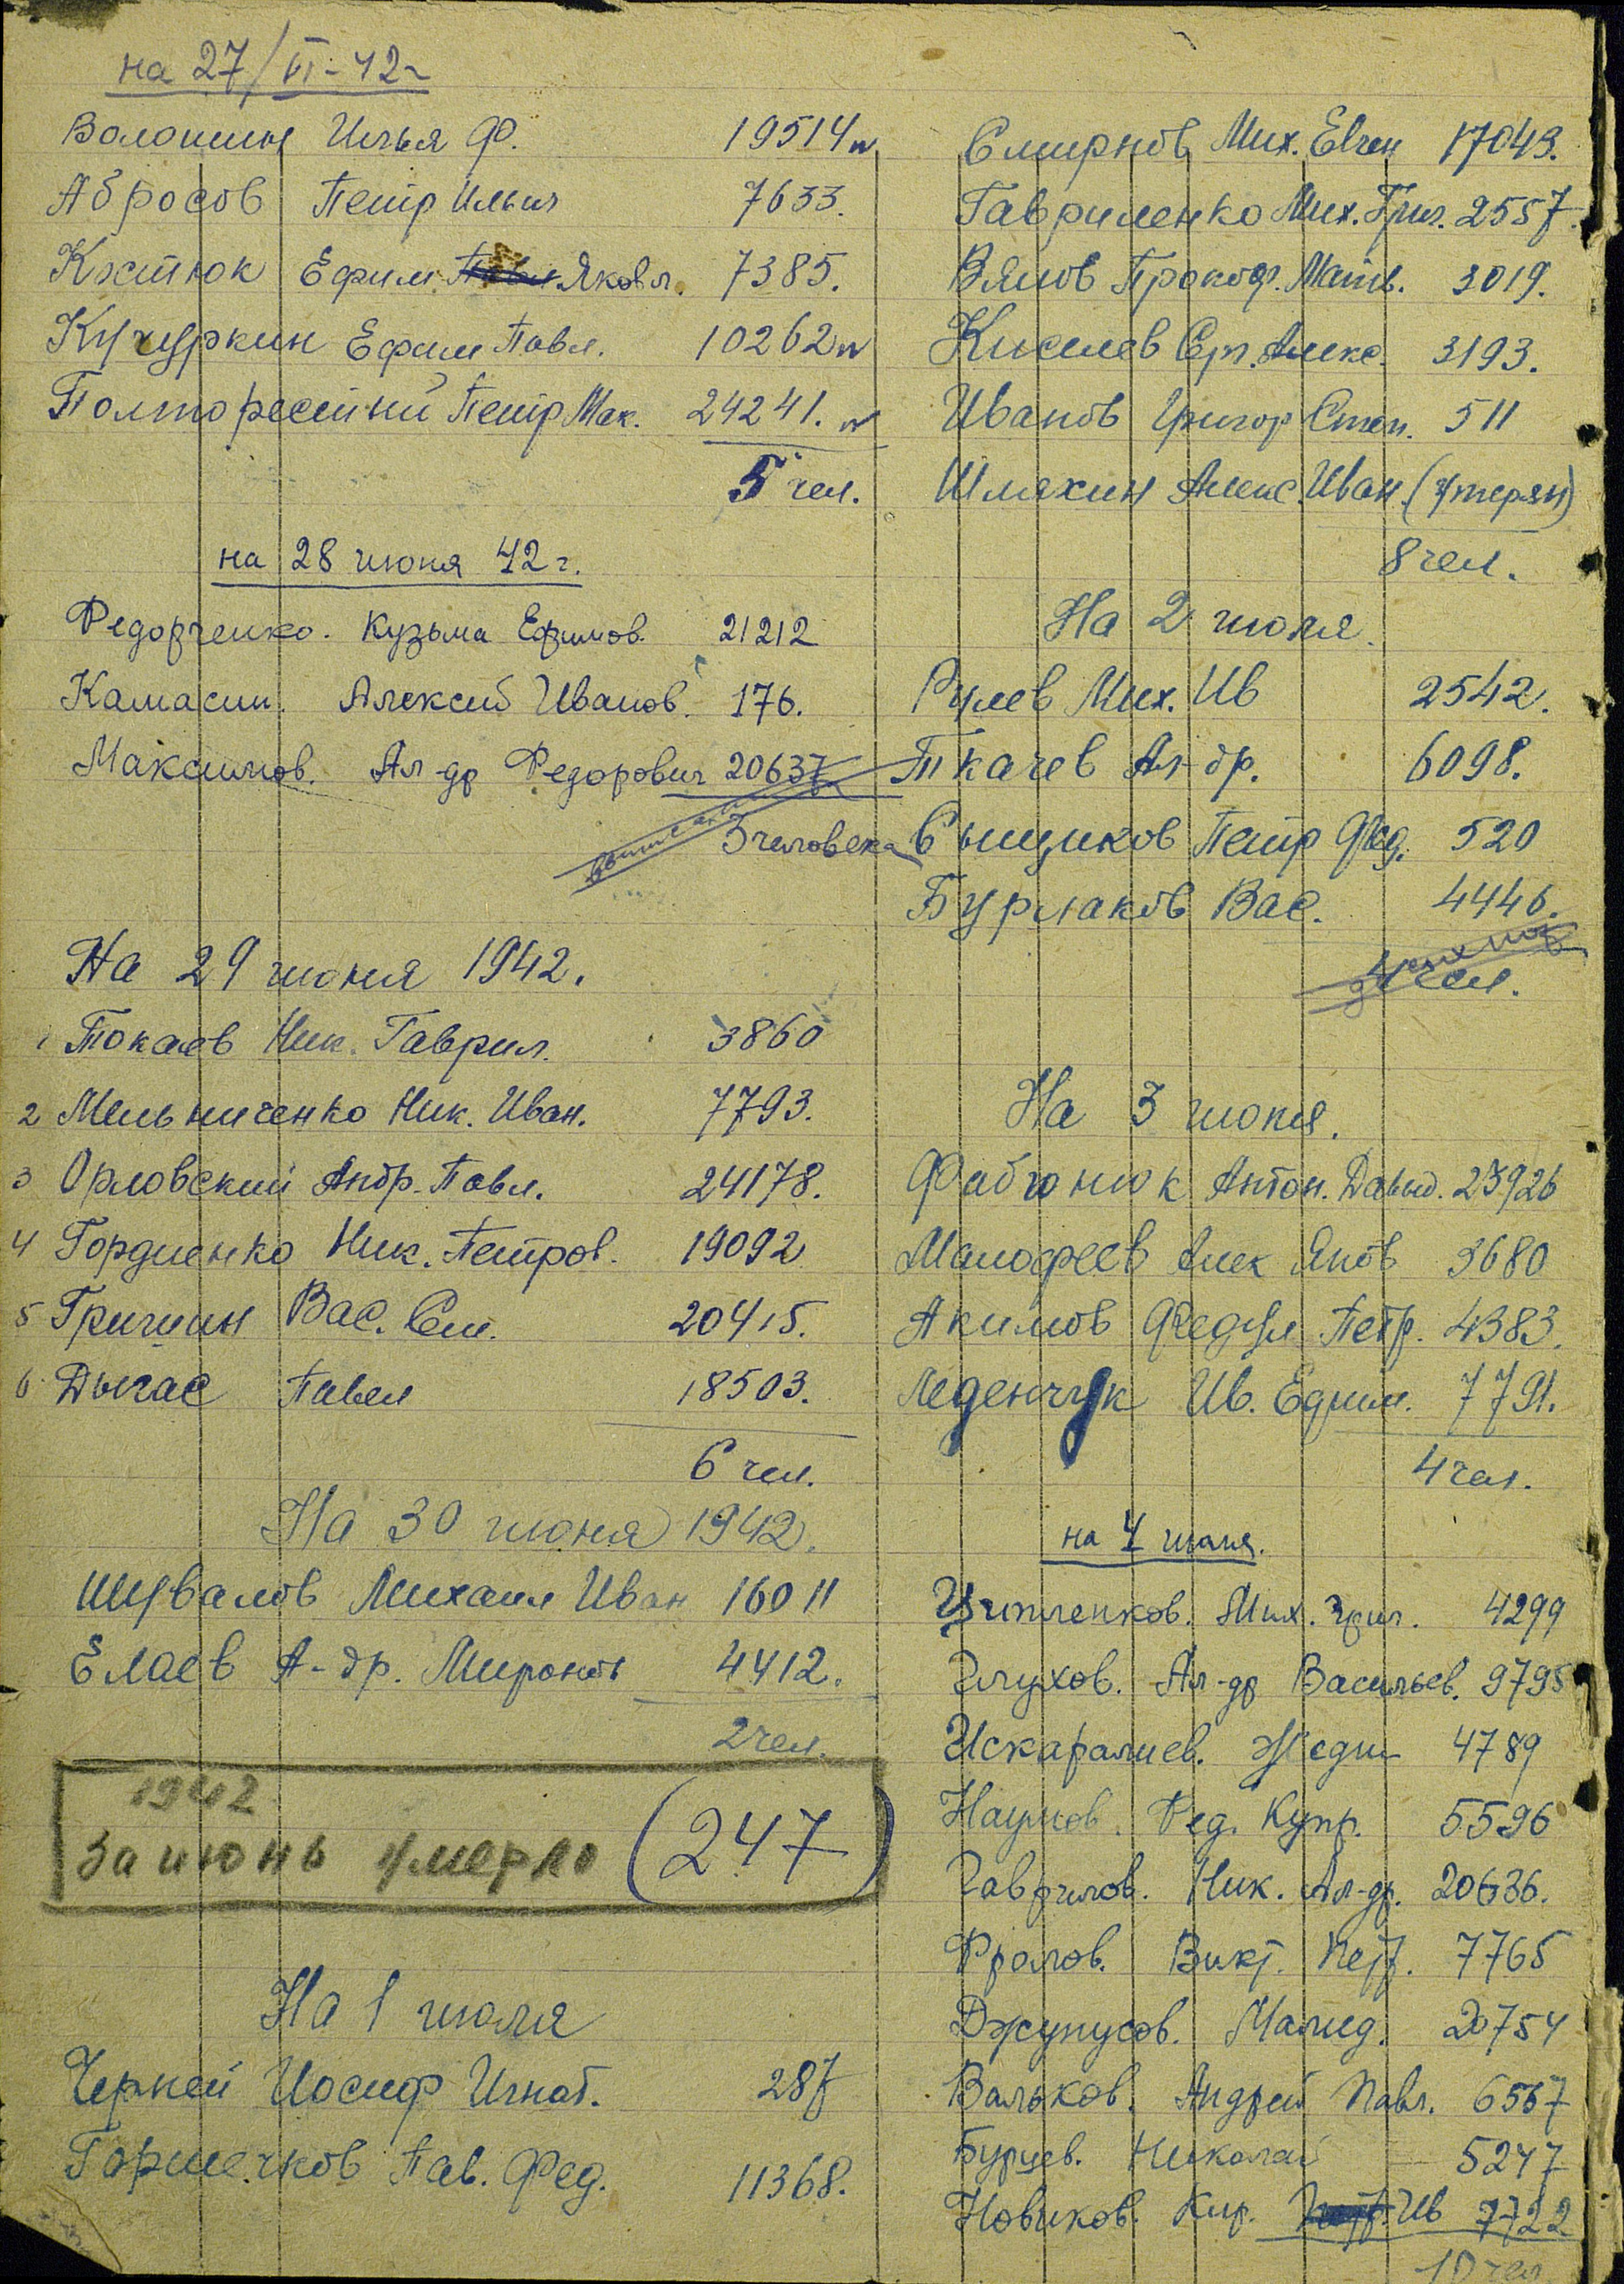 на 27/VI-42г
Волошин Илья Ф. 19514
Абросов Петр Ильич 7633.
Костюк Ефим Яковл. 7385.
Кучуркин Ефим Павл. 10262
Полторесткий Петр Мак. 24241.
5 чел.
на 28 июня 42г.
Федорченко. Кузьма Ефимов. 21212
Камасин. Алексей Иванов. 176.
Максимов. Ал-др Федорович 20637
3 человека
На 29 июня 1942.
1 Токаев Ник. Гаврил. 3860
2 Мельниченко Ник. Иван. 7793.
3 Орловский Андр. Павл. 24178.
4 Гордиенко Ник. Петров. 19092
5 Гричиин Вас. Сем. 20415.
6 Дычас Павел 18503.
6 чел.
На 30 июня 1942.
Шувалов Михаил Иван 16011
Елаев А-др. Миронов 4412.
2 чел.
1942
За июнь умерло (247)
На 1 июля
Черней Иосиф Игнат. 287
Горшечков Пав. Фед. 11368.
Смирнов Мих. Евген 17043.
Гавриленко Мих. Григ. 2557.
Вялов Прокоф. Матв. 3019.
Киселев Сер. Алекс. 3193.
Иванов Григор Степ. 511
Шляхин Алекс. Иван. (утерян)
8 чел.
На 2 июля.
Рулев Мих. Ив 2542.
Ткачев Ал-др. 6098.
Сыщиков Петр Фед. 520
Бурлаков Вас. 4446.
4 чел.
На 3 июля.
Фабіонюк Антон. Давыд. 23926
Малофеев Алек Яков 3680
Акимов Федул Петр. 4383.
Леденчук Ив. Ефим. 7791.
4 чел.
на 4 июля.
Мих. Григ. 4299
Глухов. Ал-др Васильев. 9795
Искаралиев. 4789
Наумов. Фед. Купр. 5596
Гаврилов. Ник. Ал-др. 20636.
Фролов. Викт. Петр. 7765
Джунусов. Малид. 20754
Вальков. Андрей Павл. 6567
Бурцев. Николай 5247
Новиков. Кир. Ив 7722
10 чел